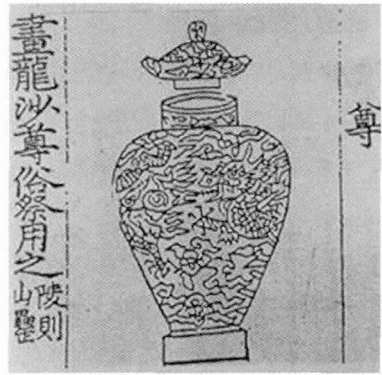 尊
畫龍沙尊俗祭用之
陵則
山罍